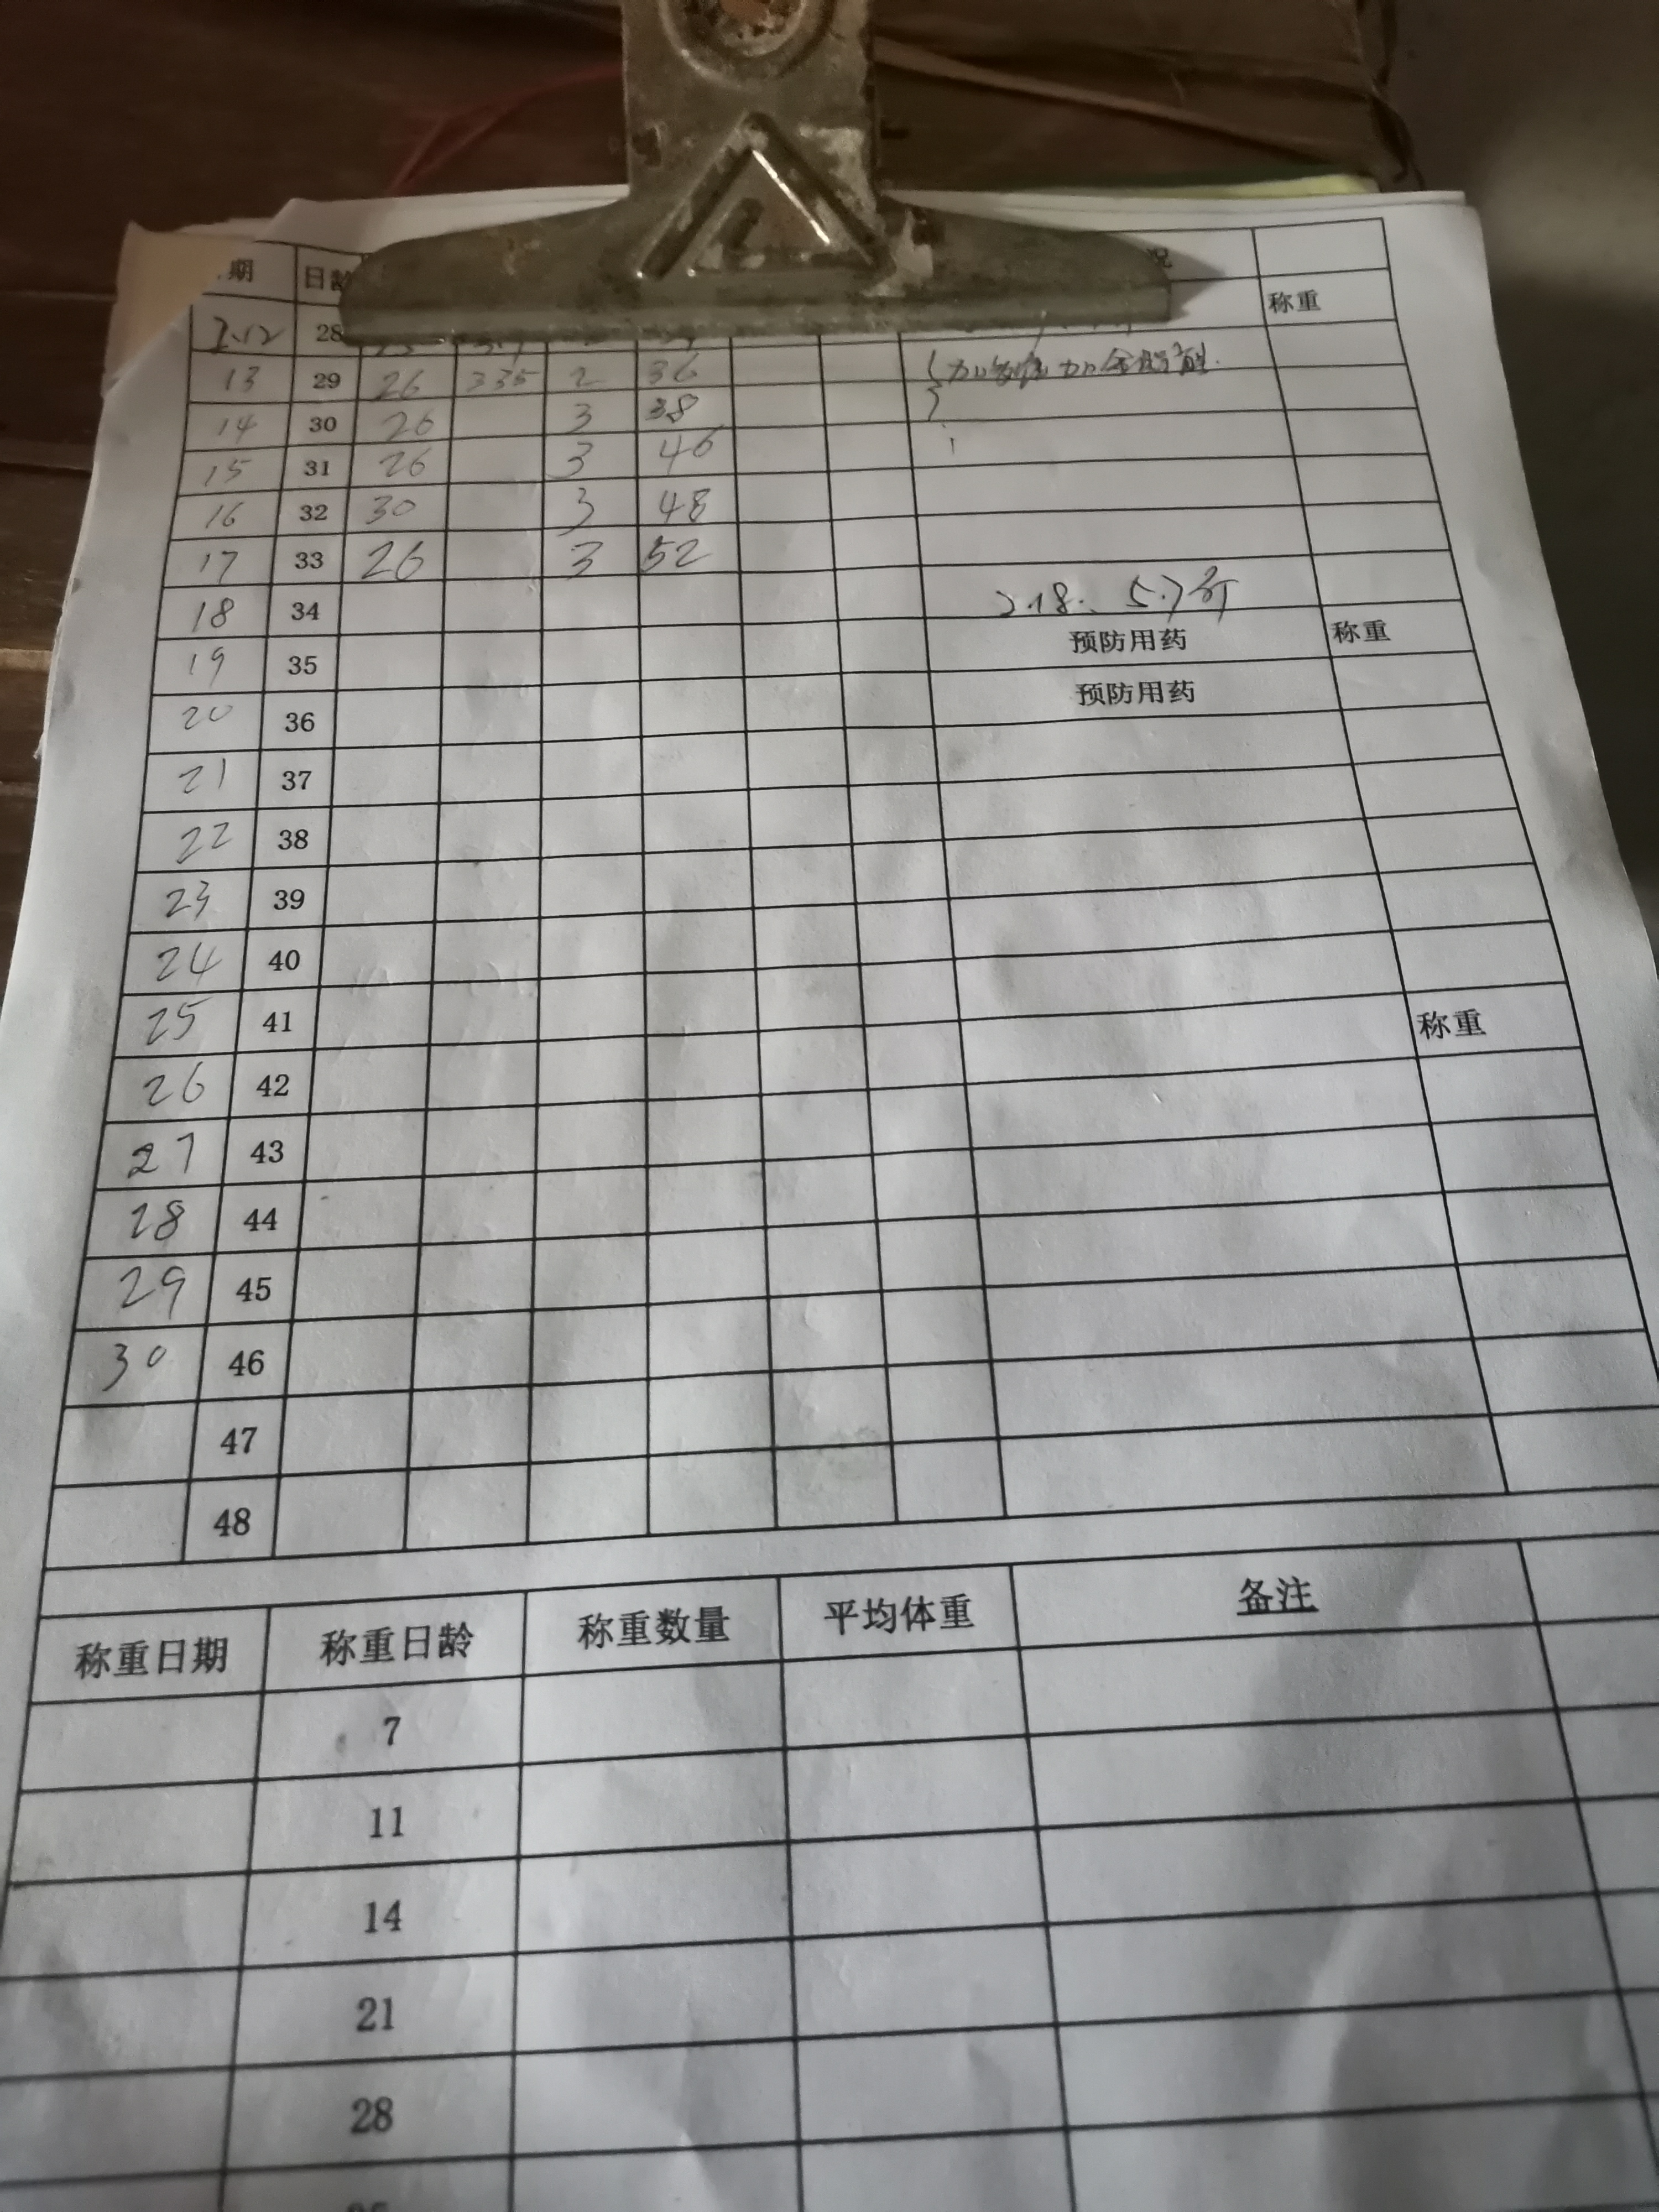 期 日龄 况
28 称重
13 29 26 335 2 36
14 30 26 3 38
15 31 26 3 46
16 32 30 3 48
17 33 26 3 52
18 34 218. 5.7斤
19 35 预防用药 称重
20 36 预防用药
21 37
22 38
23 39
24 40
25 41
26 42 称重
27 43
28 44
29 45
30 46
47
48
称重日期 称重日龄 称重数量 平均体重 备注
7
11
14
21
28